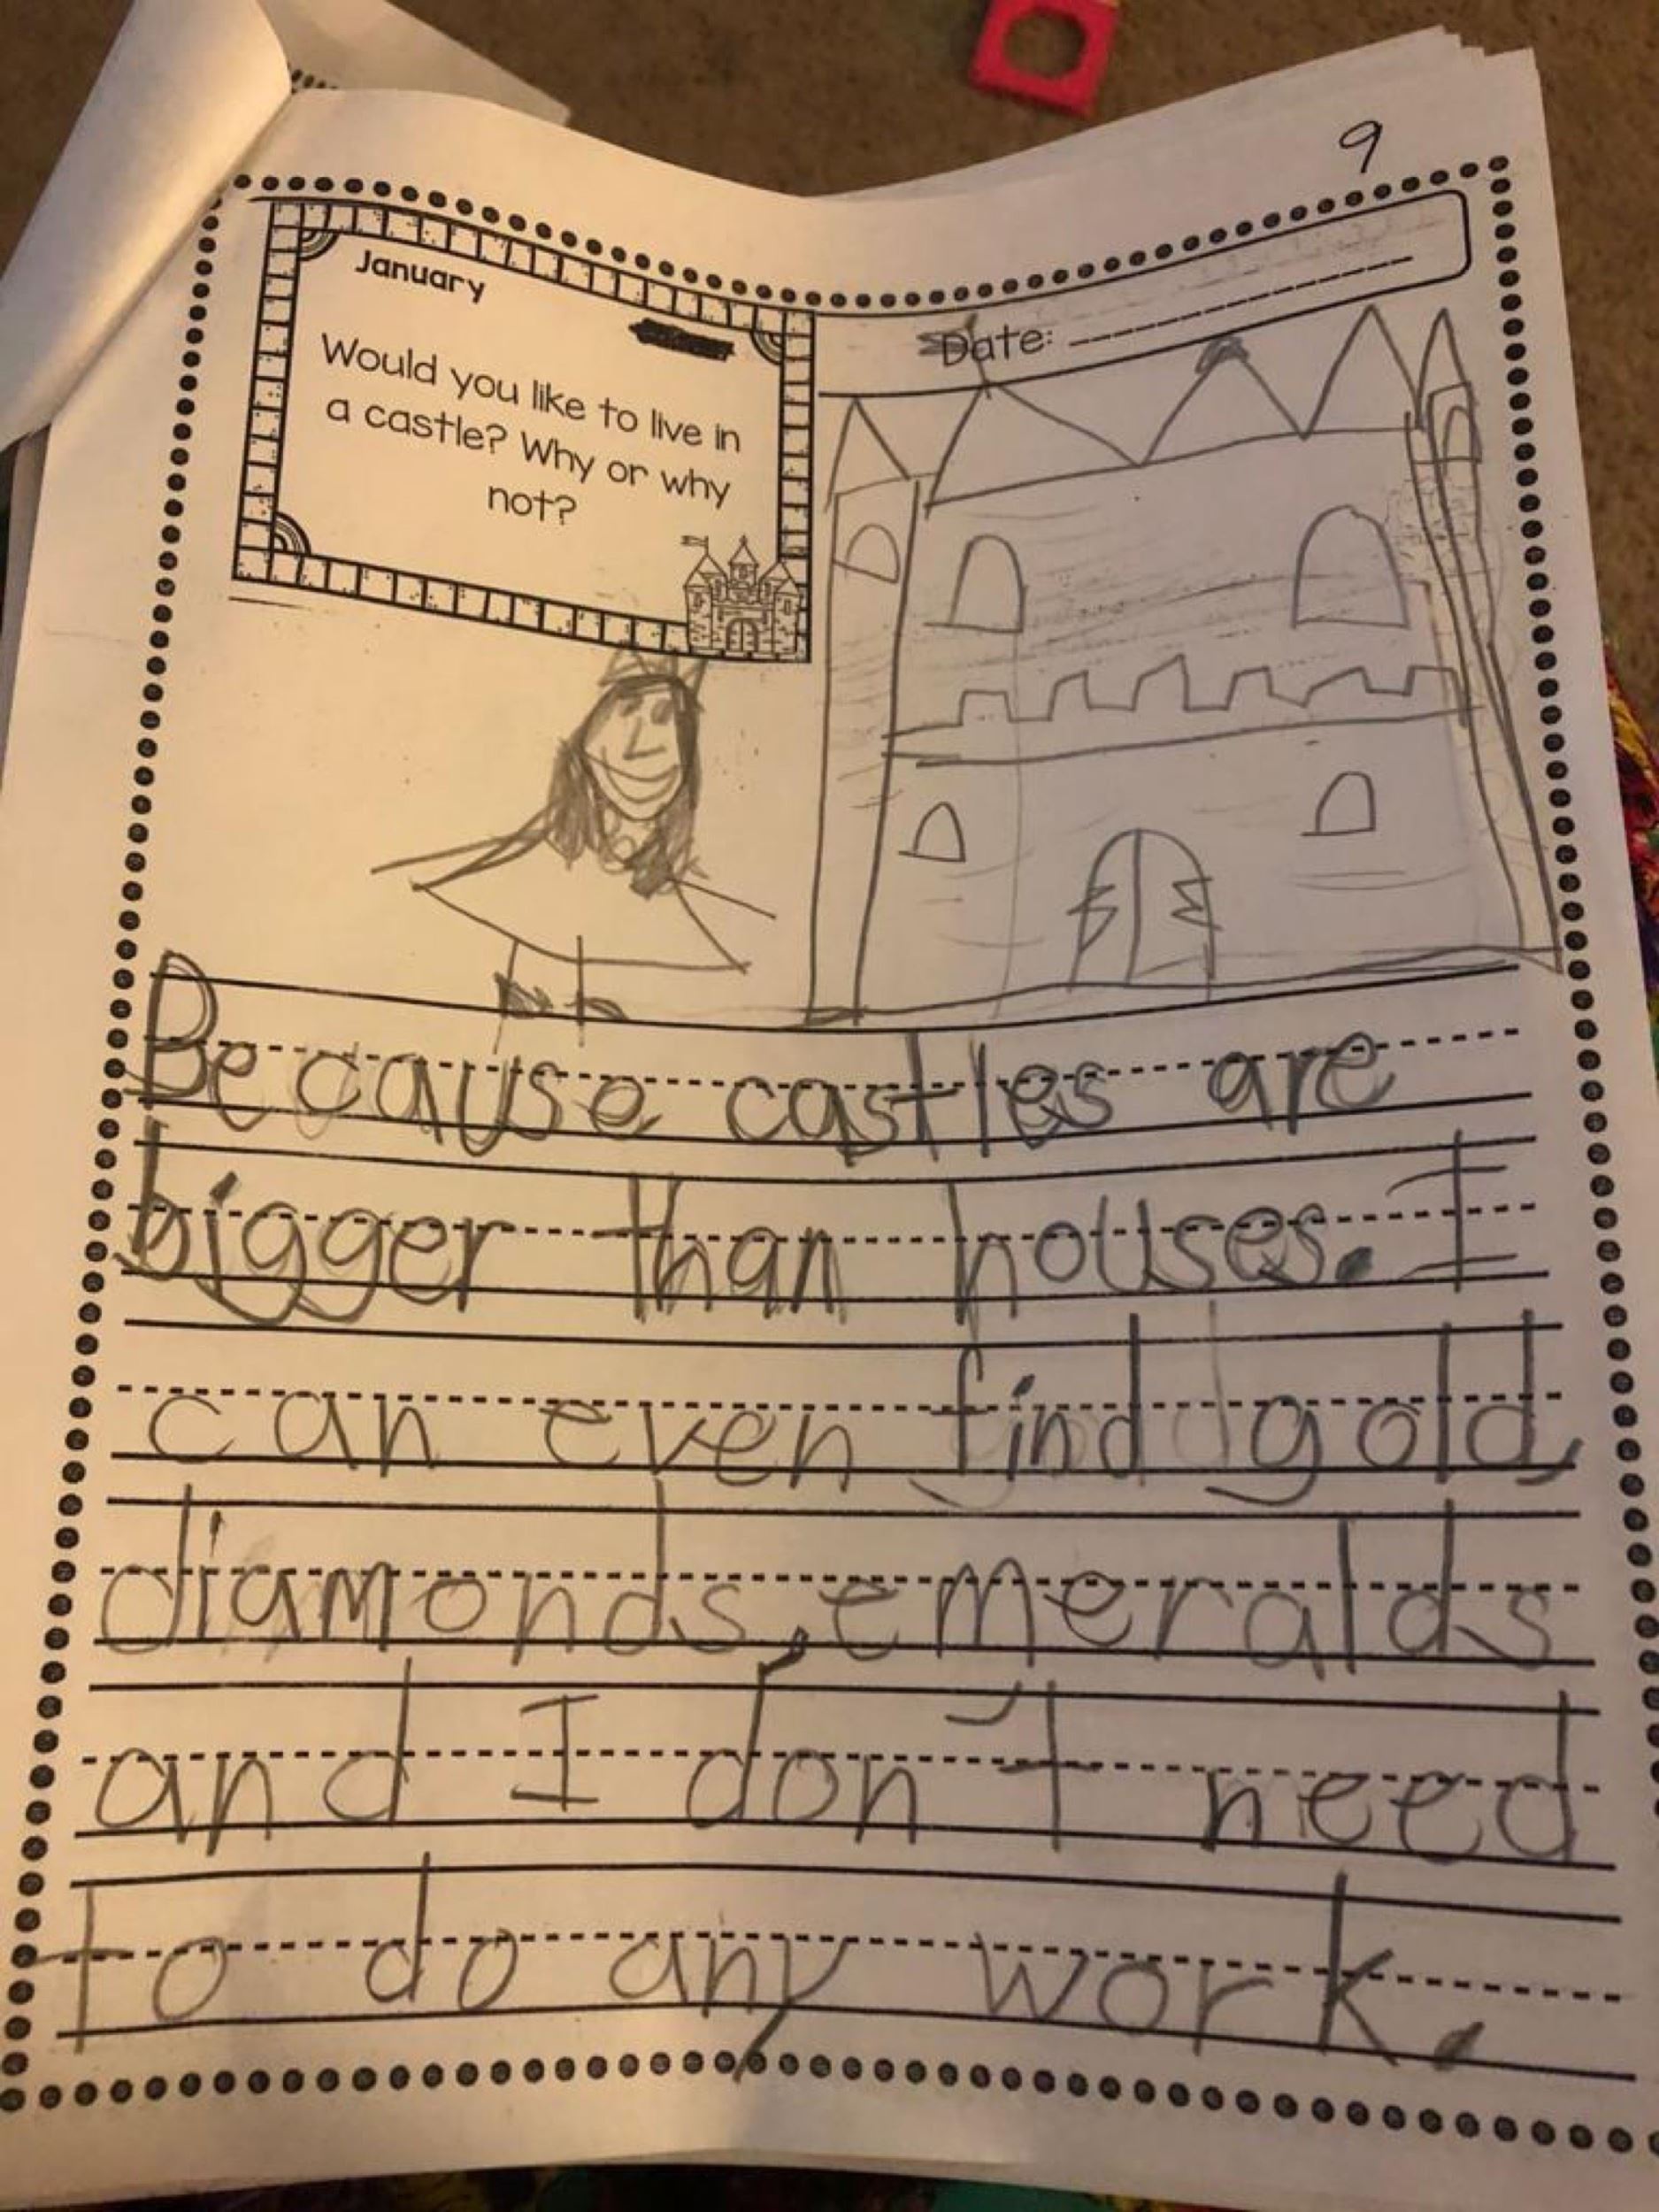 9
January
Date:
Would you like to live in
a castle? Why or why
not?
Because castles are
bigger than houses. I
can even find gold,
diamonds, emeralds
and I don't need
to do any work.